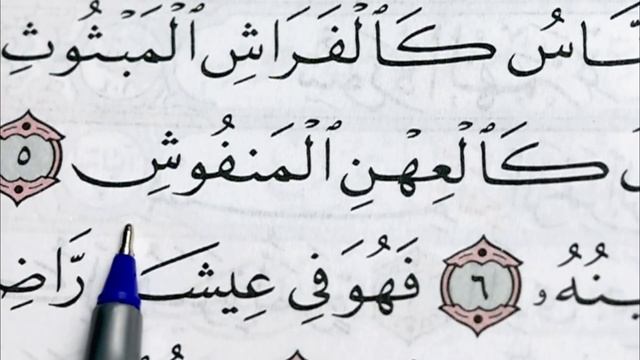 ـَّاسُ كَٱلْفَرَاشِ ٱلْمَبْثُوثِ
كَٱلْعِهْنِ ٱلْمَنفُوشِ ٥
ـينُهُۥ ٦ فَهُوَ فِي عِيشَـ رَّاضِـ